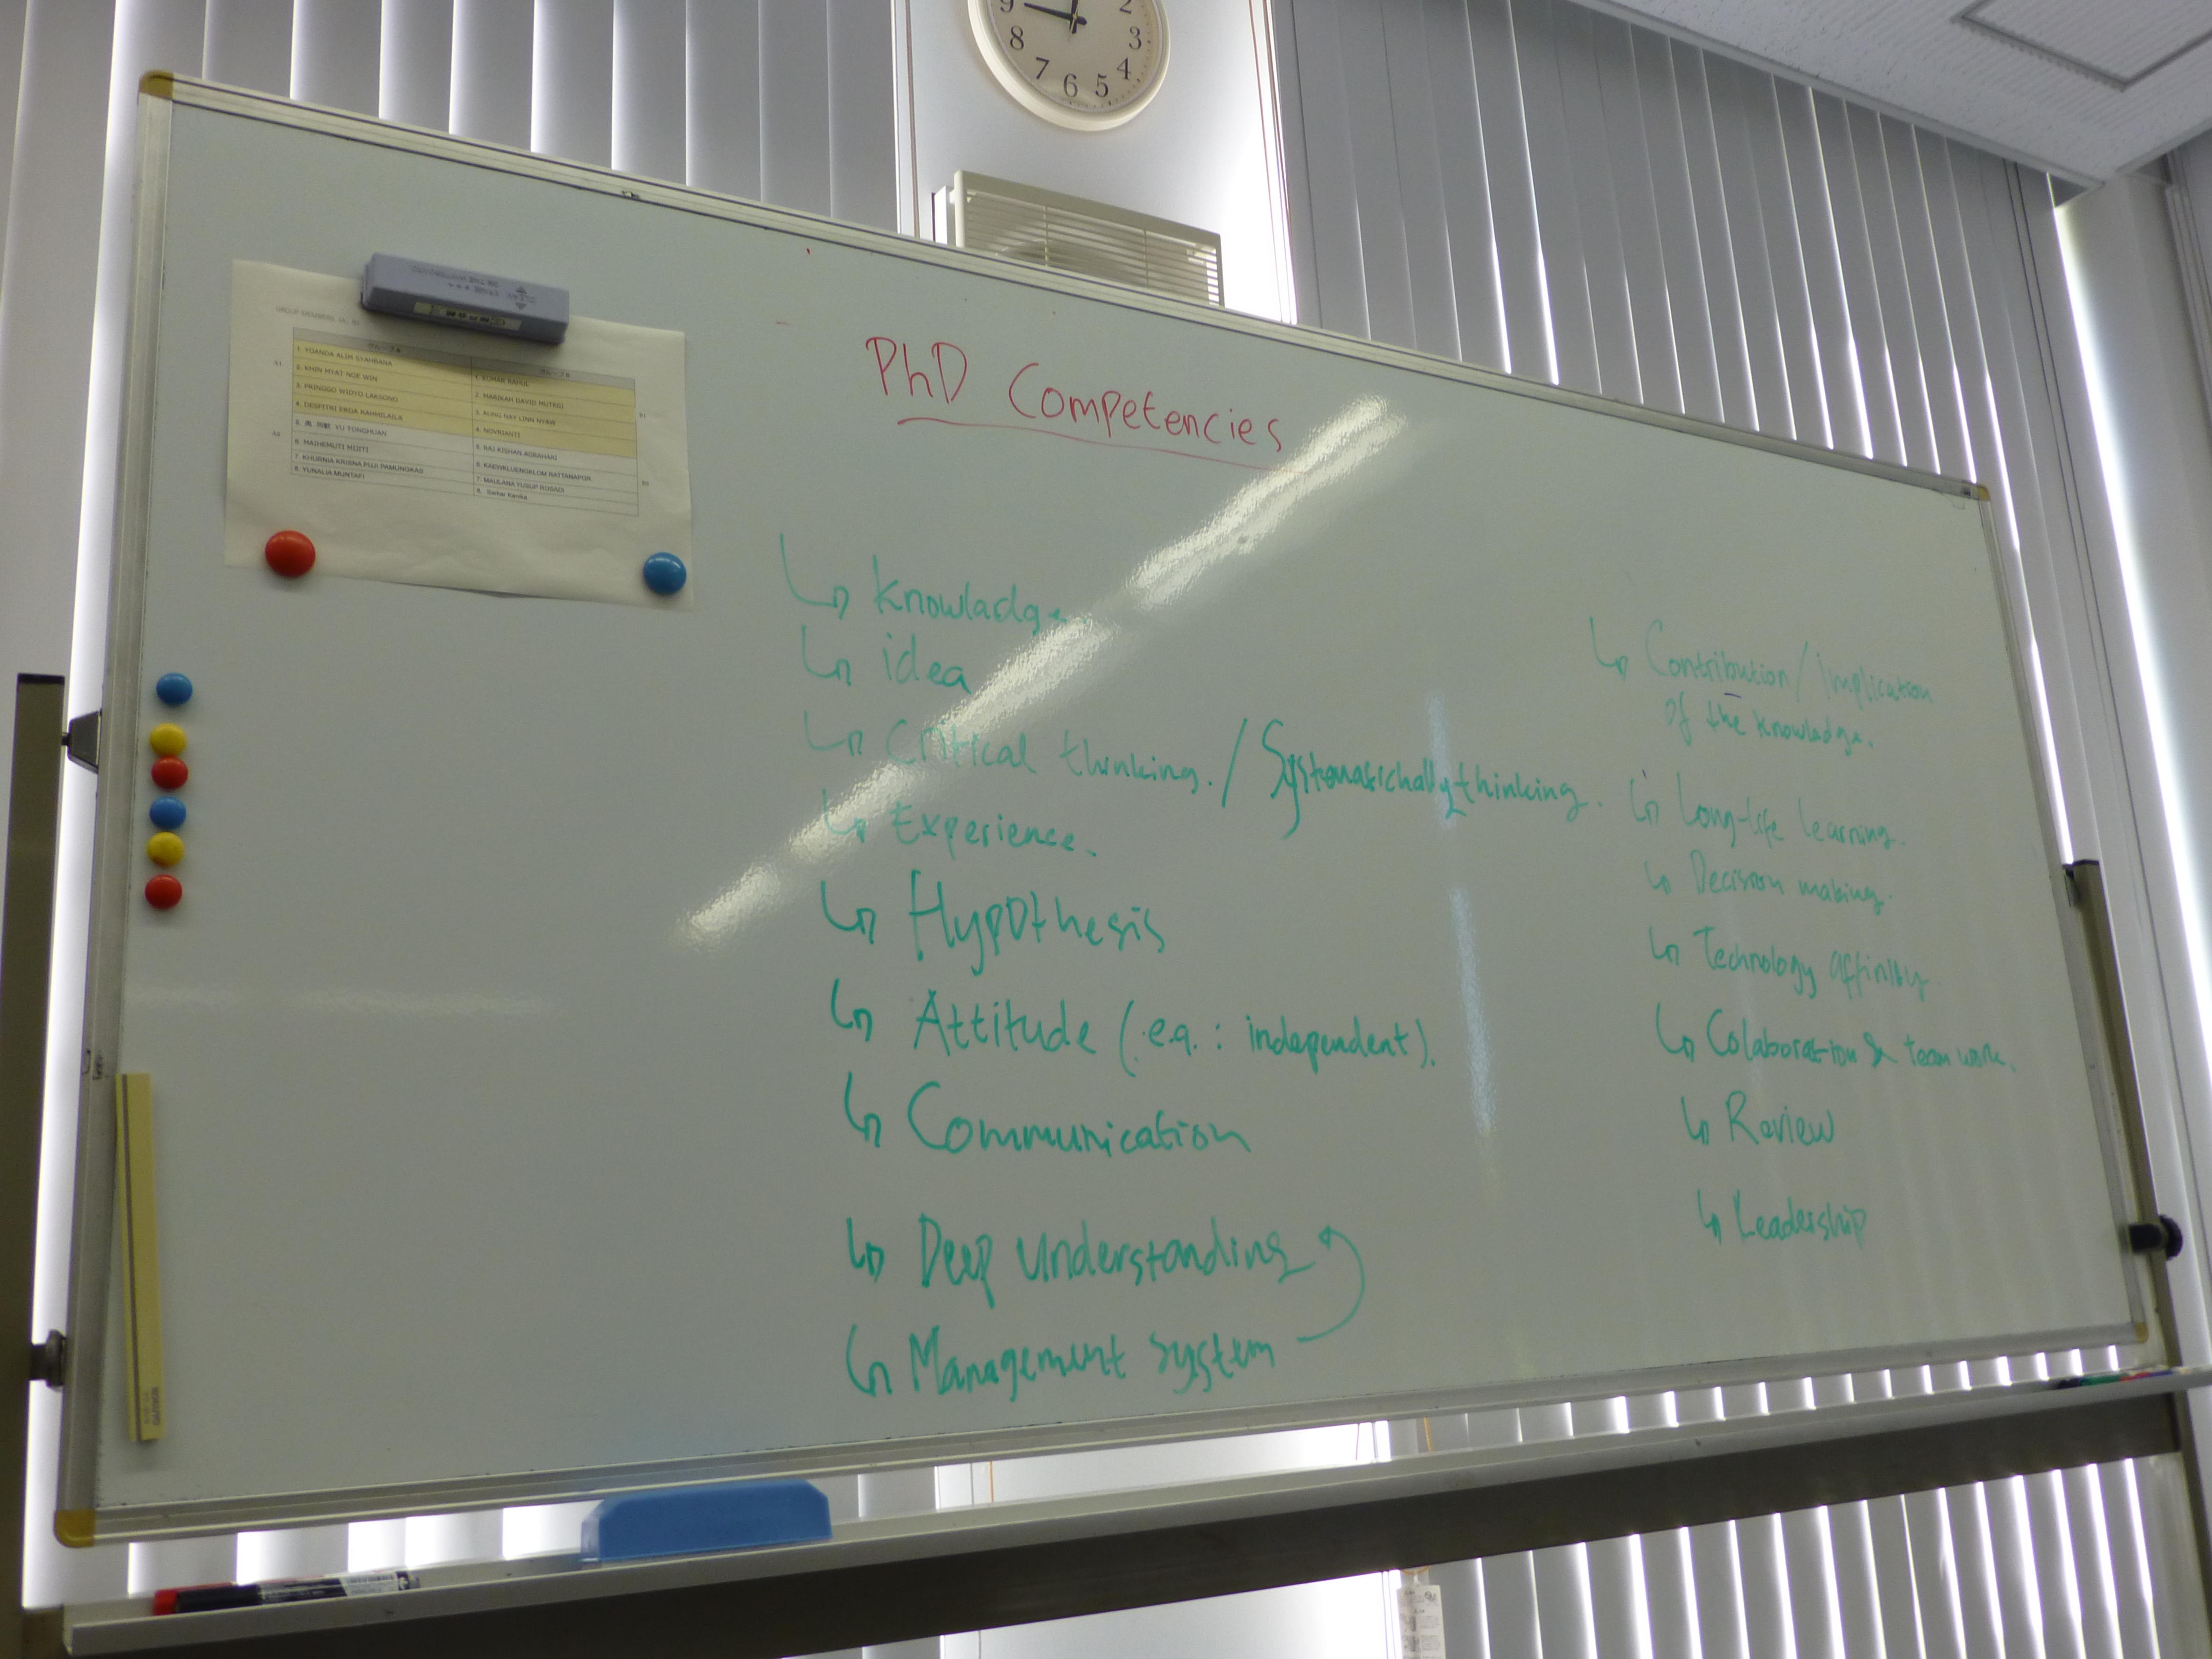 9
2
8
3
7
4
6
5
GROUP MEMBERS
グループA
グループB
A1
1. YOANDA ALIM SYAHBANA
1. KUMAR RAHUL
2. KHIN MYAT NOE WIN
2. MARIKAH DAVID MUTEGI
B1
3. PRINGGO WIDYO LAKSONO
3. AUNG NAY LINN NYAW
4. DESFITRI ERDA RAHMILAILA
4. NOVRIANTI
A2
YU TONGHUAN
5. RAJ KISHAN AGRAHARI
6. MAIHEMUTI MIJITI
6. KAEWKLUENGKLOM RATTANAPOR
7. KHURNIA KRISNA PUJI PAMUNGKAS
7. MAULANA YUSUP ROSADI
8. YUNALIA MUNTAFI
8. Sarkar Kanika
PhD Competencies
↳ Knowladge
↳ idea
↳ Critical thinking. / Systematichally thinking.
↳ Experience.
↳ Hypothesis
↳ Attitude (e.g.: independent).
↳ Communication
↳ Deep understanding
↳ Management system
↳ Contribution / Implication
of the knowladge.
↳ Long-life learning.
↳ Decision making.
↳ Technology affinity.
↳ Colaboration & team work.
↳ Review
↳ Leadership